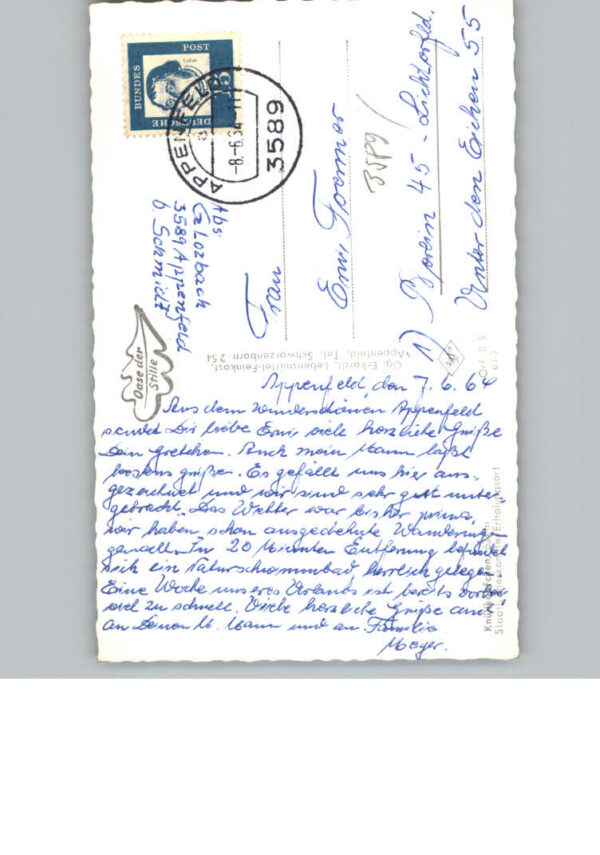 DEUTSCHE
BUNDES
POST
15
Luther
APPENFELD
-8.-6.6
3589
Abs.
G. Lotzbach
3589 Appenfeld
b. Schmidt
Frau
Erni Troemner
3589
1) Berlin 45 - Lichterfeld.
Unter den Eichen 55
Oase der
Stille
Gg. Erkardt, Lebensmittel-Feinkost,
Appenfeld, Tel. Schwarzenborn 254
Appenfeld, den 7.6.64
Aus dem wunderschönen Appenfeld
sendet Dir liebe Erni viele herzliche Grüße
Dein Gretchen. Auch mein Mann läßt
bestens grüßen. Es gefällt uns hier aus-
gezeichnet und wir sind sehr gut unter-
gebracht. Das Wetter war bisher prima,
wir haben schon ausgedehnte Wanderung
gemacht. In 20 Minuten Entfernung befindet
sich ein Naturschwimmbad, herrlich gelegen
Eine Woche unseres Urlaubs ist bereits vorbei
viel zu schnell. Viele herzliche Grüße auch
an Deinen M. Mann und an Familie
Meyer.
Staatl. anerkannter Erholungsort